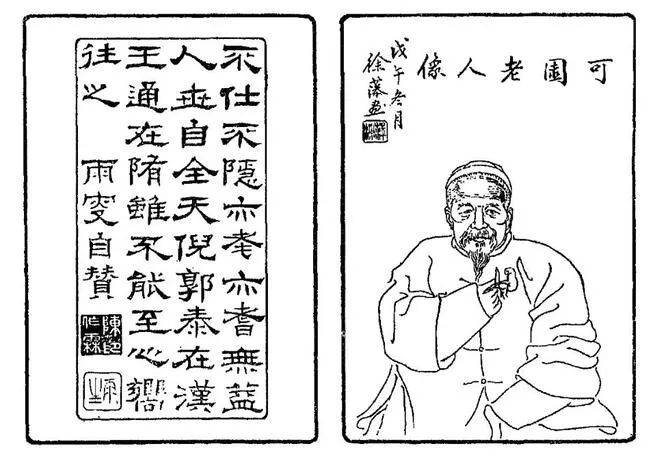 可園老人像
戊午冬月
徐藻画
不仕不隱亦耄亦耆無益
人世自全天倪郭泰在漢
王通在隋雖不能至心嚮
往之 雨叟自贊
陳印作霖